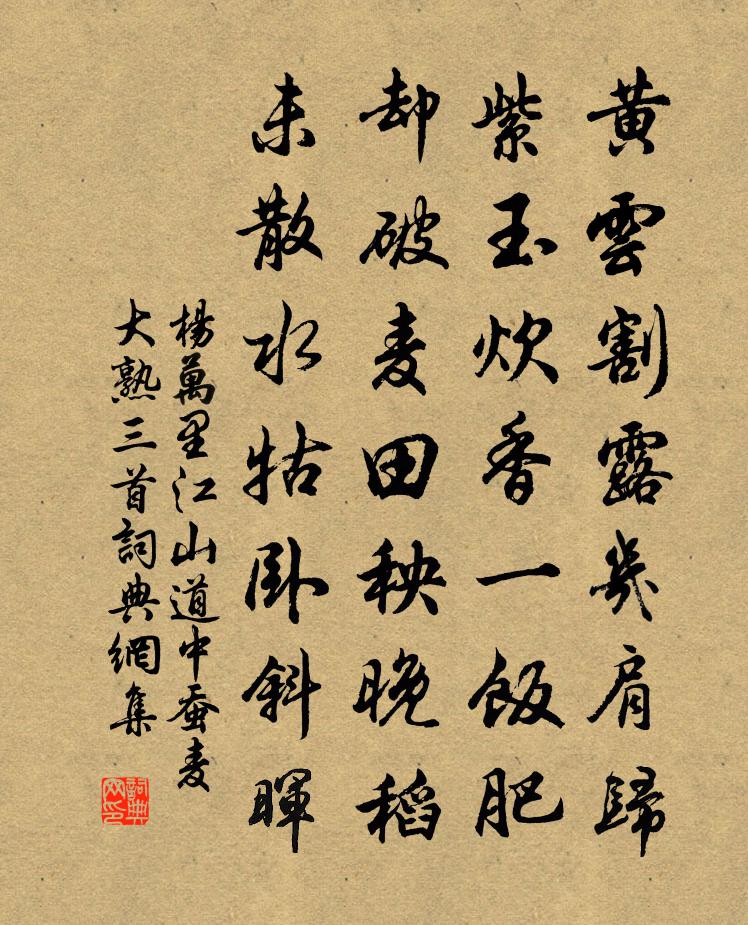 黃雲割露幾肩歸
紫玉炊香一飯肥
却破麦田秧晚稻
未散水牯卧斜暉
楊萬里江山道中蚕麦
大熟三首詞典網集
詞典网印